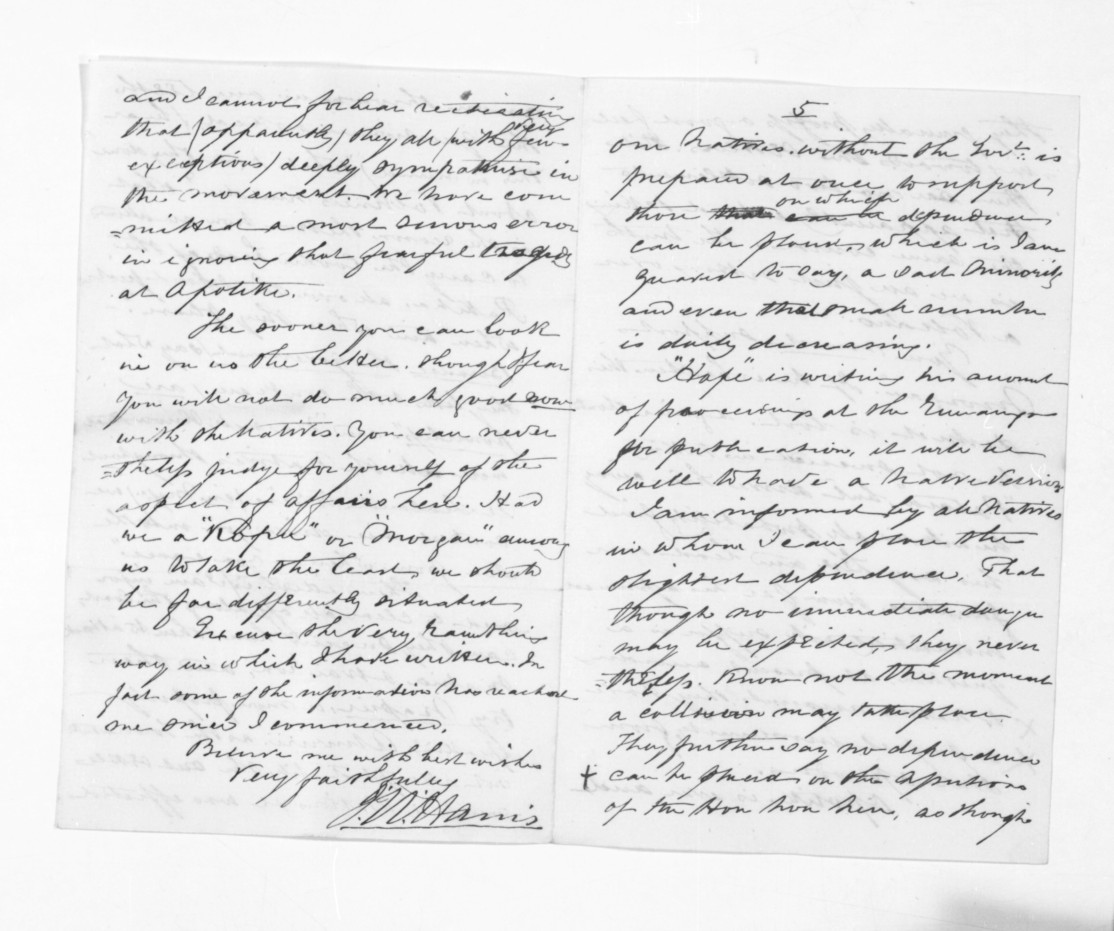 and I cannot forbear reiterating
that (apparently) they all (with very few
exceptions) deeply sympathise in
the movement. We have com
-mitted a most serious error
in ignoring that fearful tragedy
at Opotiki.
The sooner you can look
in on us the better. though I fear
you will not do much good now
with the Natives. You can never
=theless judge for yourself of the
aspect of affairs here. Had
we a "Ropu" or "Morgan" among
us to take the lead, we should
be far differently situated,
Excuse the very rambling
way in which I have written. In
fact some of the information has reached
me since I commenced.
Believe me with best wishes
Very faithfully
J.W. Harris
5
our Natives. without the Govt. is
prepared at once to support
those that on which can be dependence
can be placed, which is I am
grieved to say, a sad Minority
and even that small number
is daily decreasing.
"Hape" is writing his account
of proceedings at the Runanga
for publication, it will be
well to have a Native Version
I am informed by all Natives
in whom I can place the
slightest dependence. That
though no immediate danger
may be expected, they never
=theless. Know not the moment
a collision may take place.
They further say no dependence
+ can be placed on the assertions
of the Hau hau here, as though